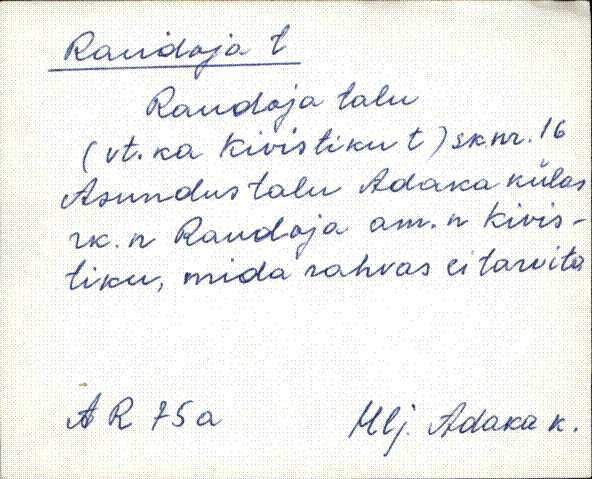 Raudoja t
Raudoja talu
(vt. ka Kivistiku t) sk.nr. 16
Asundustalu Adaka külas
rk. n Raudoja am. n Kivis-
tiku, mida rahvas ei tarvita
AR 75a
Mlj. Adaka k.